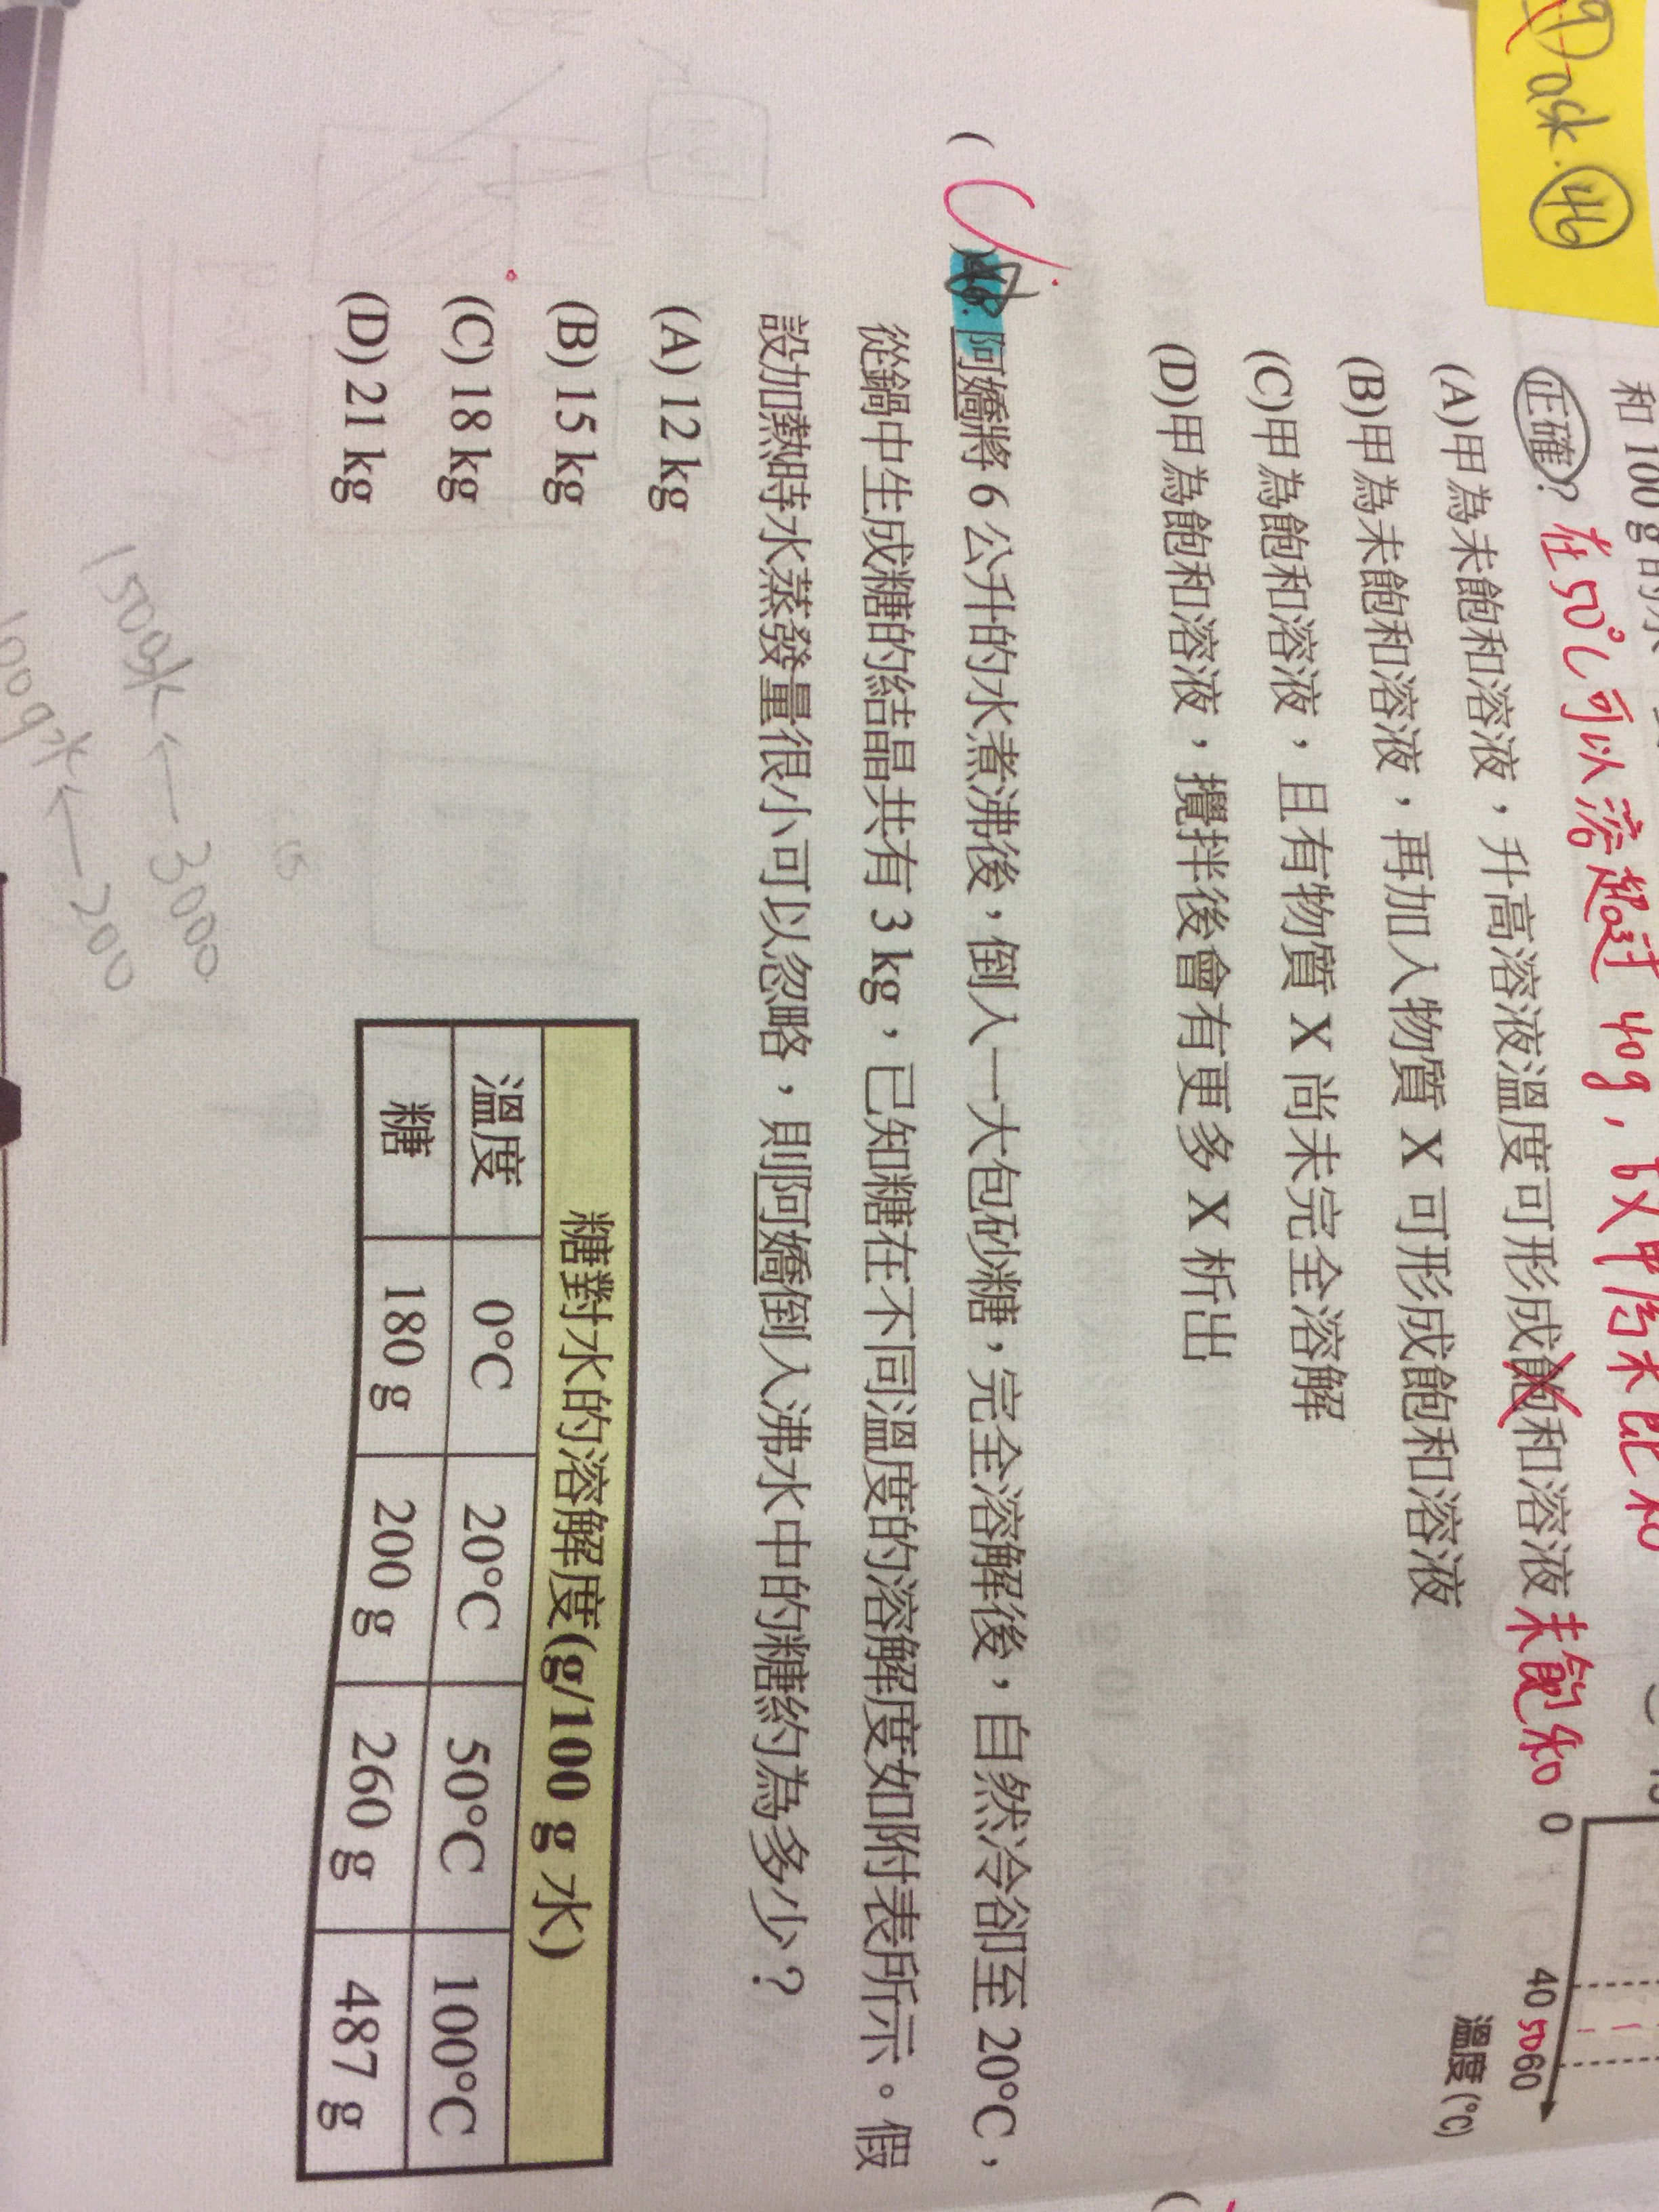 ask. 46
和 100 g 的水
正確？ 在50℃可以溶超過 40g，故甲為未飽和
(A)甲為未飽和溶液，升高溶液溫度可形成飽和溶液 未飽和
(B)甲為未飽和溶液，再加入物質 X 可形成飽和溶液
(C)甲為飽和溶液，且有物質 X 尚未完全溶解
(D)甲為飽和溶液，攪拌後會有更多 X 析出
0 40 50 60
溫度(℃)
( )46. 阿嬌將 6 公升的水煮沸後，倒入一大包砂糖，完全溶解後，自然冷卻至 20℃，
從鍋中生成糖的結晶共有 3 kg，已知糖在不同溫度的溶解度如附表所示。假
設加熱時水蒸發量很小可以忽略，則阿嬌倒入沸水中的糖約為多少？
(A) 12 kg
(B) 15 kg
(C) 18 kg
(D) 21 kg
糖對水的溶解度(g/100 g 水)
溫度 0℃ 20℃ 50℃ 100℃
糖 180 g 200 g 260 g 487 g
1500g水 ← 3000
100g水 ← 200